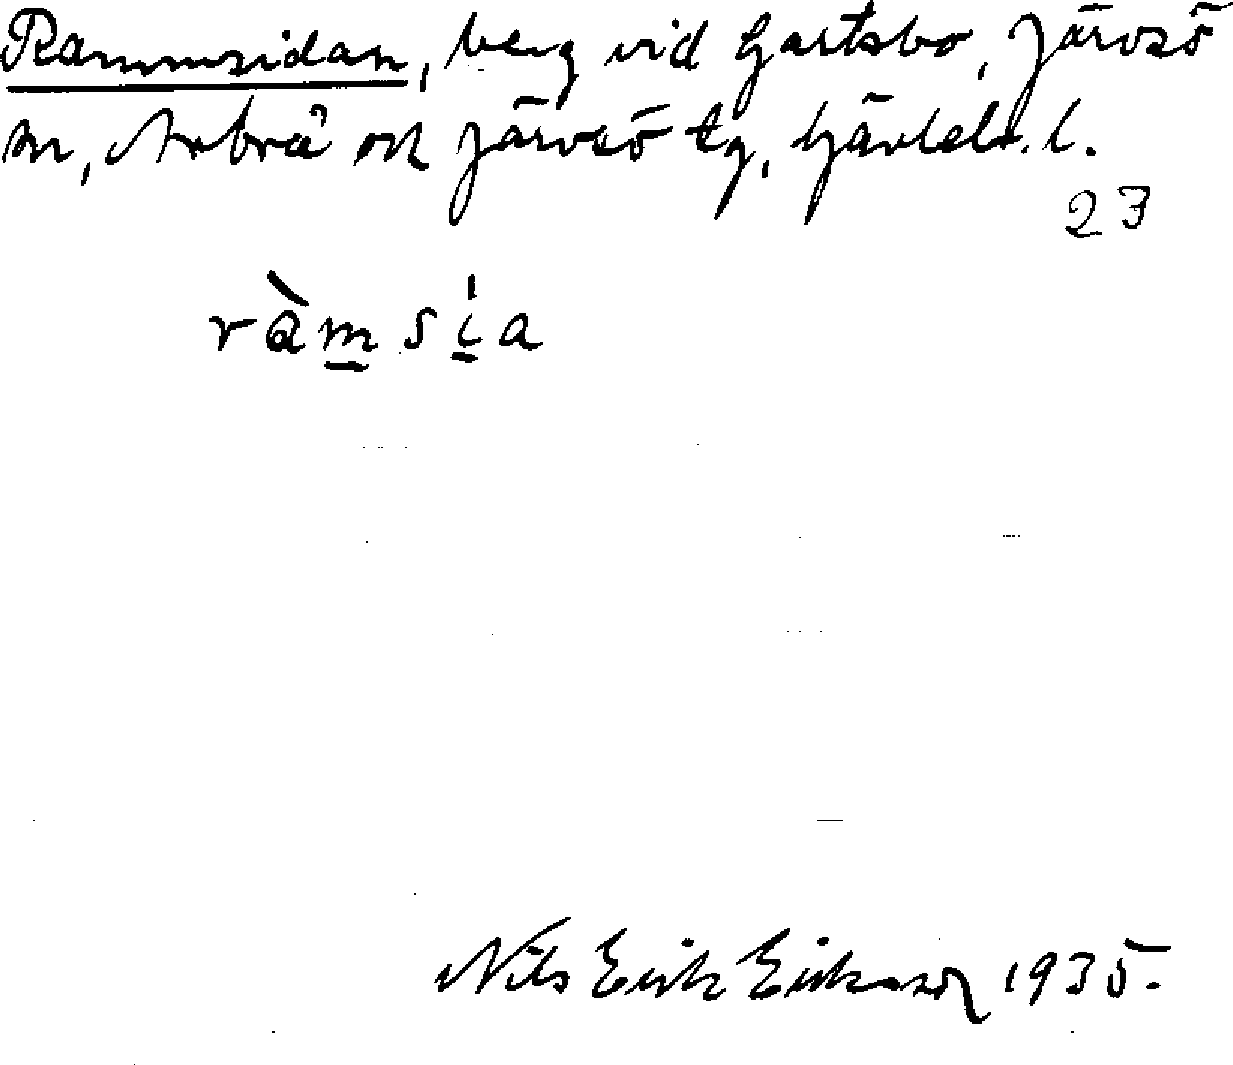 Rammsidan, berg vid Gartsbo, Järvsö
sn, Arbrå och Järvsö tg, Gävlebs. l.
23
ràmsía
Nils Erik Eriksson 1935.